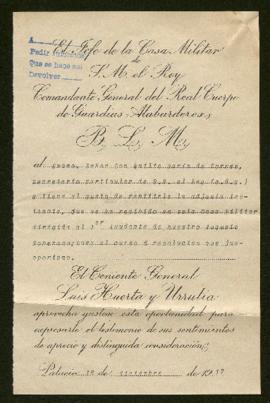 A
Pedir
Que se haga
Devolver
El Jefe de la Casa Militar
de
S. M. el Rey
Comandante General del Real Cuerpo
de Guardias Alabarderos,
B. L. M.
al Excmo. Señor Don Emilio María de Torres,
secretario particular de S.M. el Rey (q.D.g.)
y tiene el gusto de remitirle la adjunta ins-
tancia, que se ha recibido en esta Casa Militar
dirigida al 1er Ayudante de nuestro Augusto
Soberano, para el curso ó resolución que
El Teniente General
Luis Huerta y Urrutia
aprovecha gustoso esta oportunidad para
expresarle el testimonio de sus sentimientos
de aprecio y distinguida consideración.
Palacio de de 1917